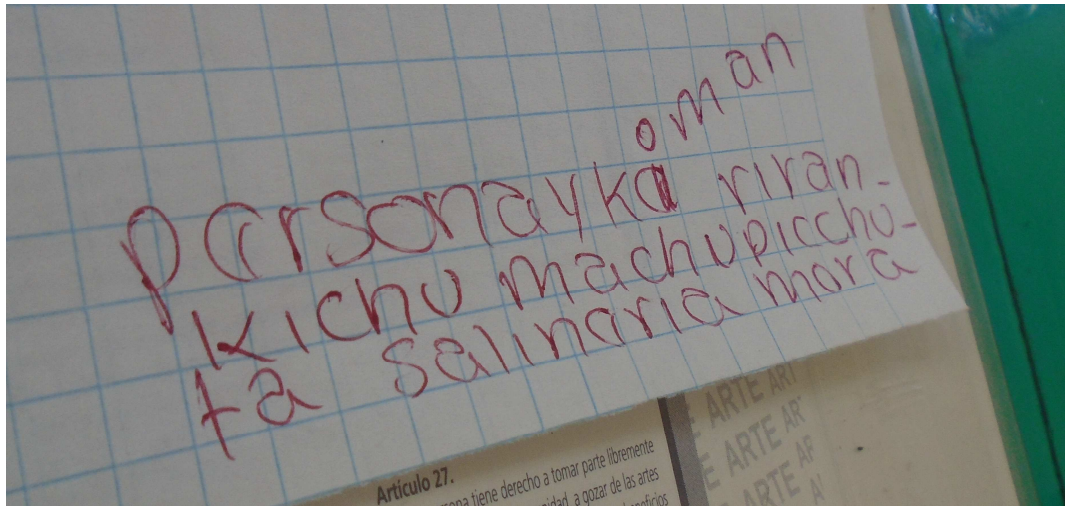 oman
parsonayka riran-
kichu machupicchu-
ta salinaria mora
Artículo 27.
tiene derecho a tomar parte libremente
a gozar de las artes
E ARTE ART
E ARTE AR
ARTE AR